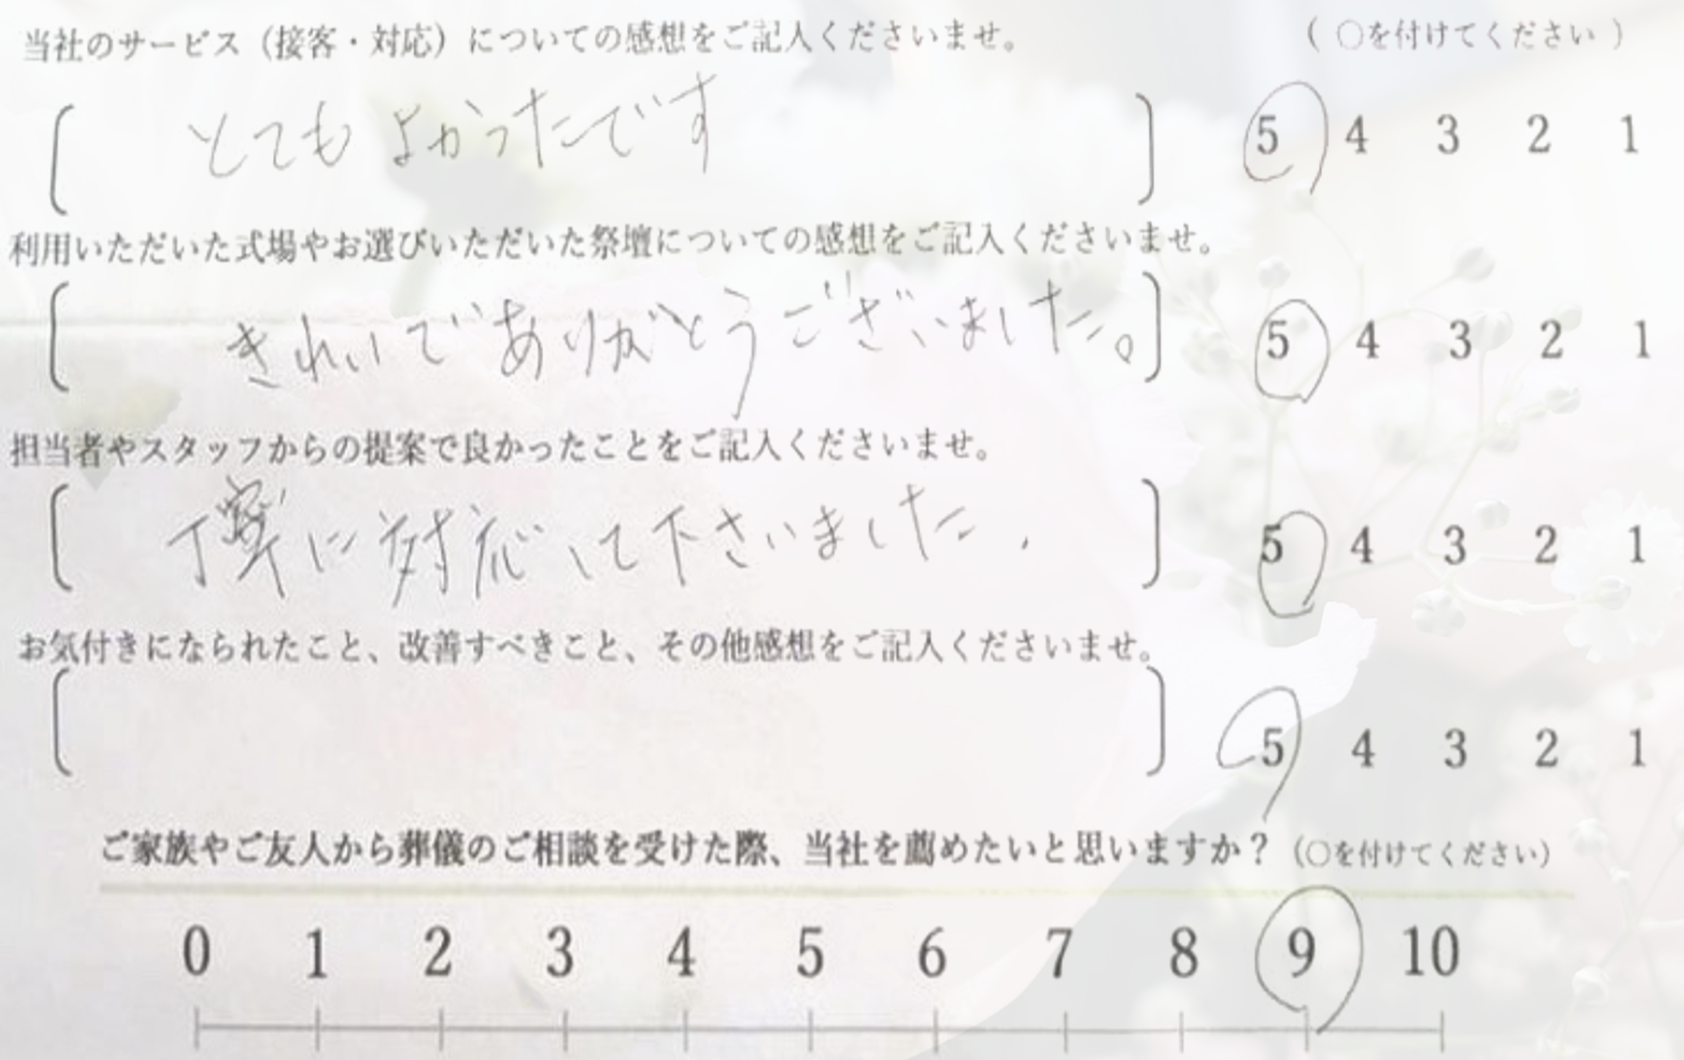 当社のサービス（接客・対応）についての感想をご記入くださいませ。 （ ○を付けてください ）
とてもよかったです 5 4 3 2 1
利用いただいた式場やお選びいただいた祭壇についての感想をご記入くださいませ。
きれいでありがとうございました。 5 4 3 2 1
担当者やスタッフからの提案で良かったことをご記入くださいませ。
丁寧に対応して下さいました. 5 4 3 2 1
お気付きになられたこと、改善すべきこと、その他感想をご記入くださいませ。
5 4 3 2 1
ご家族やご友人から葬儀のご相談を受けた際、当社を薦めたいと思いますか？（○を付けてください）
0 1 2 3 4 5 6 7 8 9 10